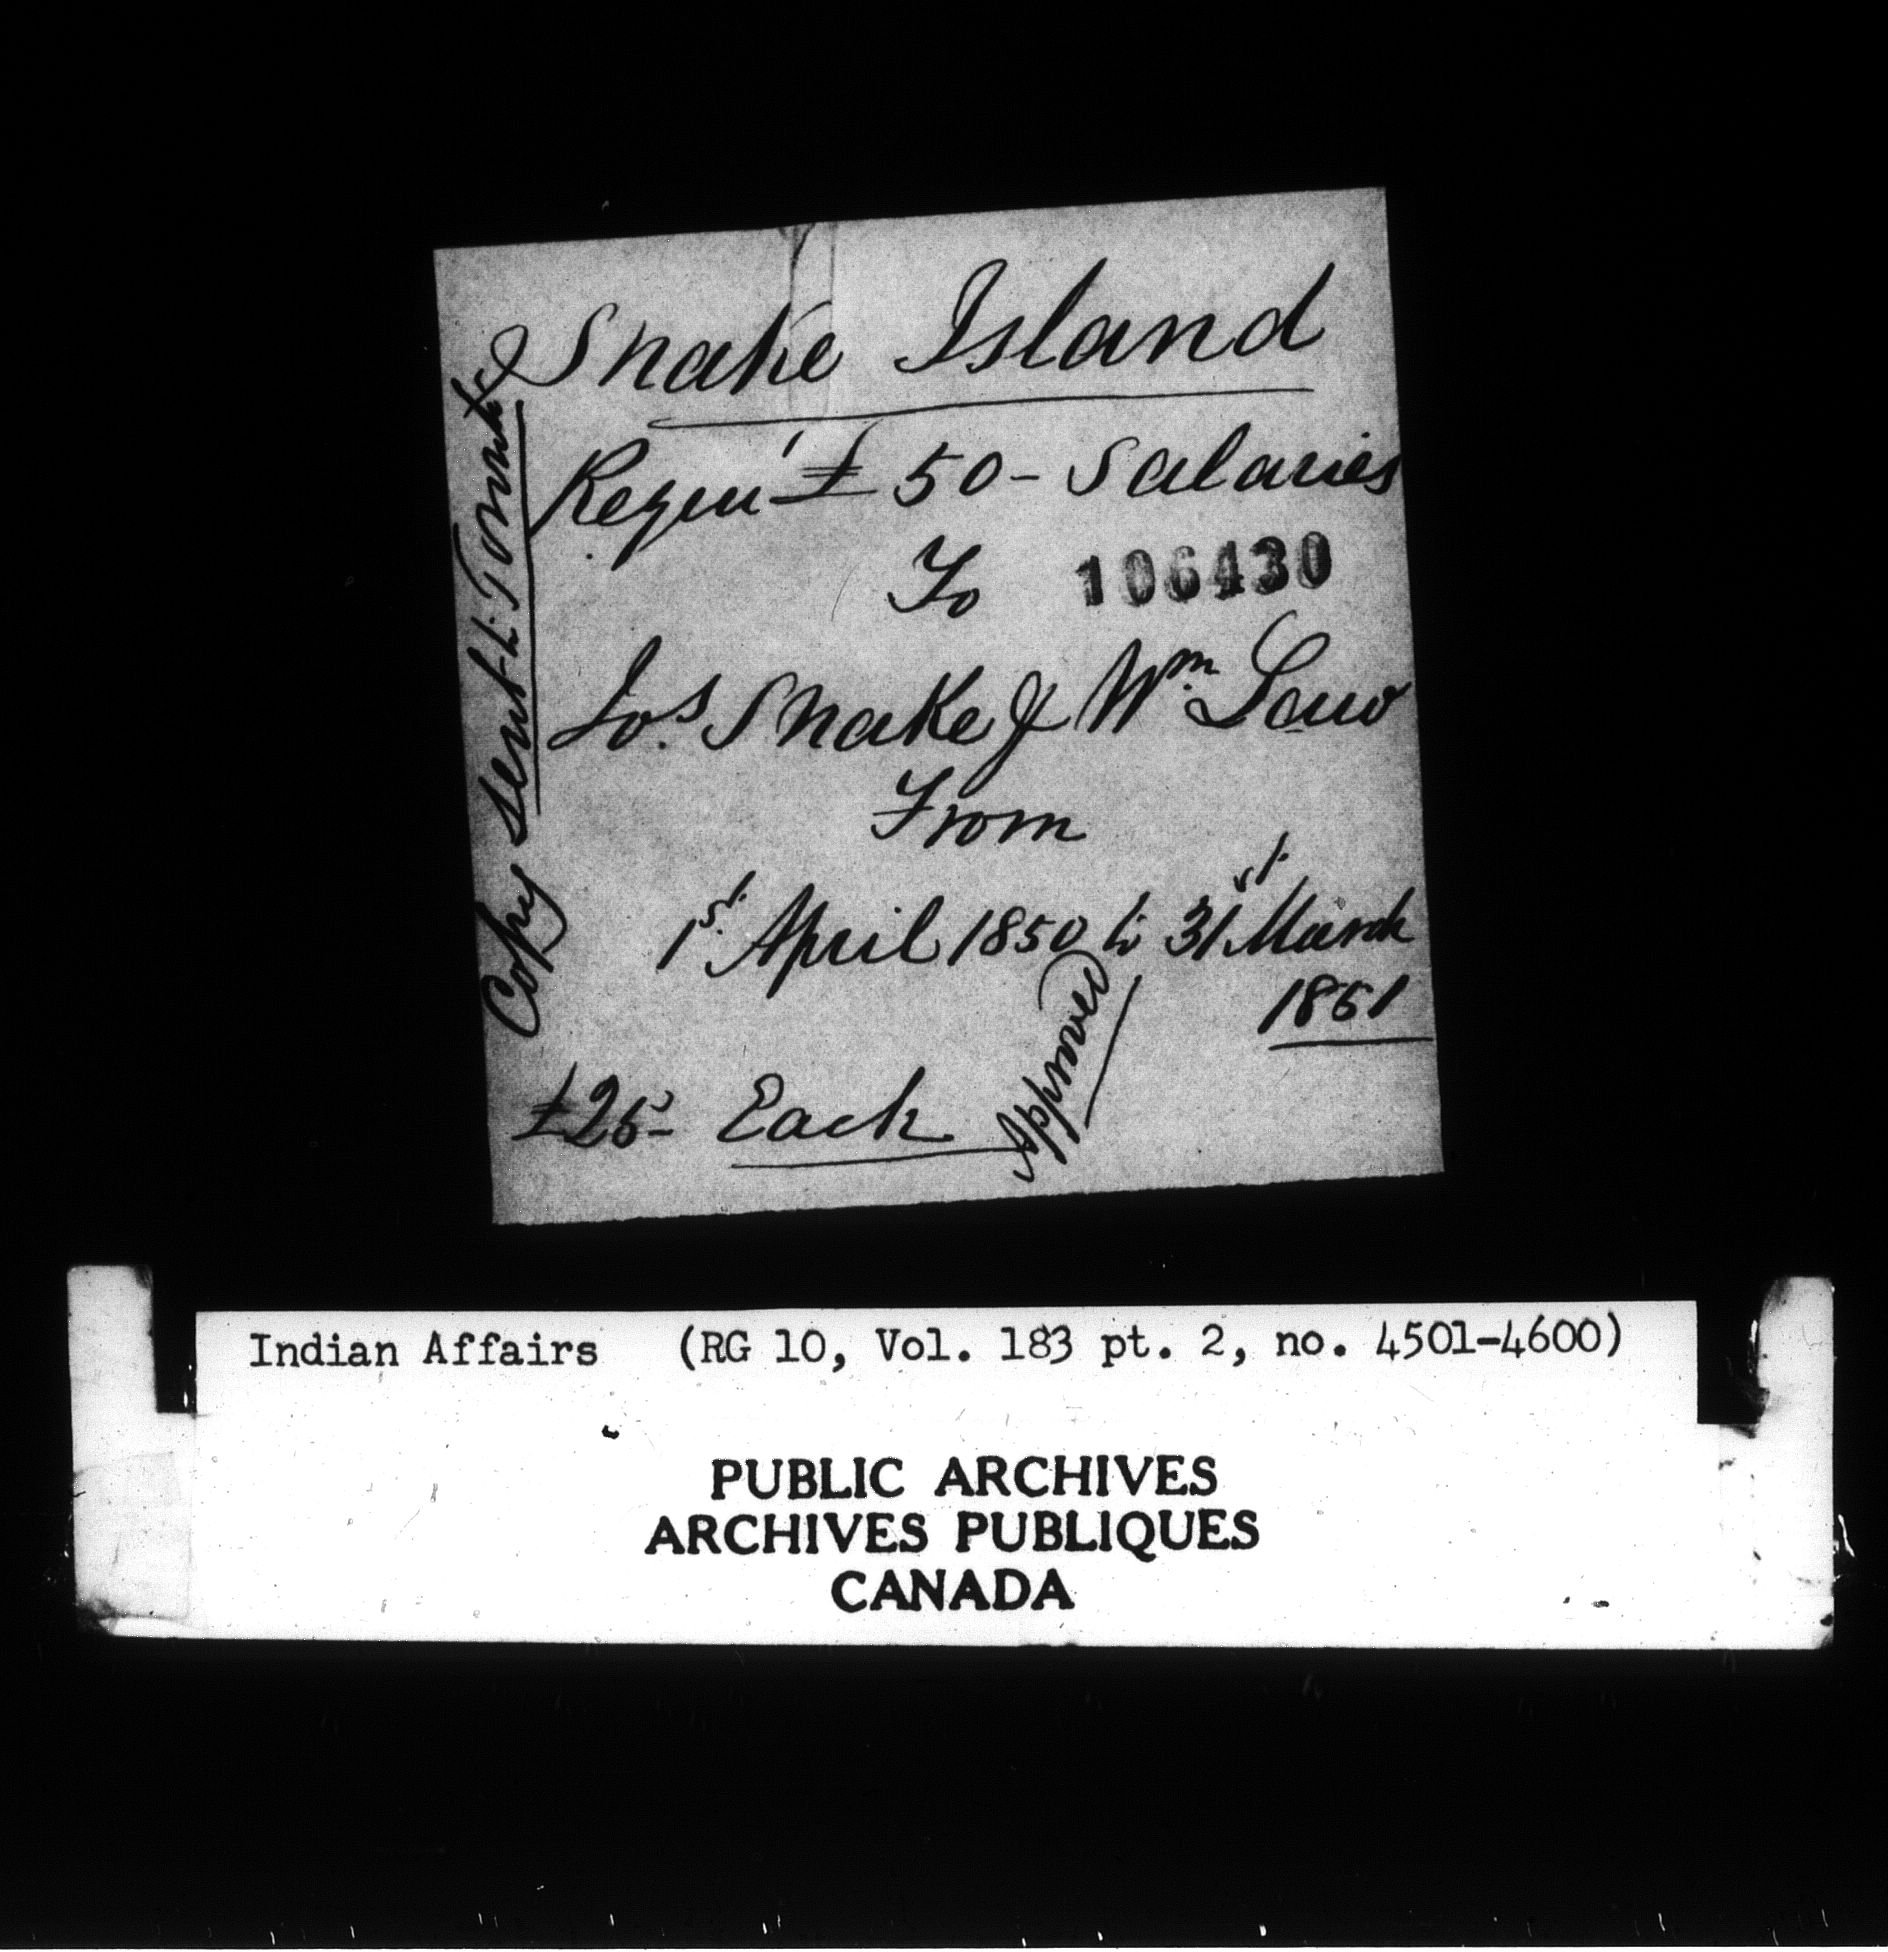 Snake Island
Requi' £ 50 - Salaries
To 106430
Jos. Snake & Wm. Law
From
1st. April 1850 to 31st. March
1851
£25- Each
Approved
Copy sent to Toronto
Indian Affairs (RG 10, Vol. 183 pt. 2, no. 4501-4600)
PUBLIC ARCHIVES
ARCHIVES PUBLIQUES
CANADA